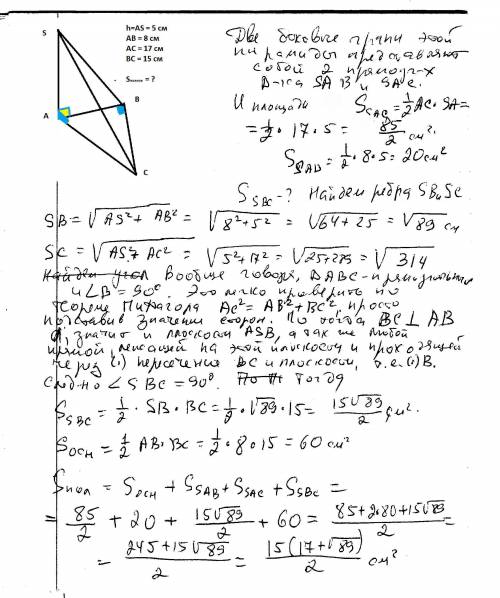 S
h=AS = 5 см
AB = 8 см
AC = 17 см
BC = 15 см
= ?
A
B
C
Две боковые грани этой
пирамиды представляют
собой 2 прямоуг-х
Δ-ка SAB и SAC.
И площади S_SAC = 1/2 AC · SA =
= 1/2 · 17 · 5 = 85/2 см².
S_SAB = 1/2 · 8 · 5 = 20 см²
S_SBC - ? Найдем ребра SB и SC
SB = √(AS² + AB²) = √(8² + 5²) = √(64 + 25) = √89 см
SC = √(AS² + AC²) = √(5² + 17²) = √(25 + 275) = √314
Вообще говоря, ΔABC - прямоугольный
и ∠B = 90°. Это легко проверить по
теореме Пифагора AC² = AB² + BC² просто
подставив значения сторон. Но тогда BC ⊥ AB
значит и плоскости ASB, а так же любой
прямой, лежащей на этой плоскости и проходящей
через (·) пересечения BC и плоскости, т.е. (·) B.
∠SBC = 90°. Тогда
S_SBC = 1/2 · SB · BC = 1/2 · √89 · 15 = 15√89/2 см².
S_осн = 1/2 AB · BC = 1/2 · 8 · 15 = 60 см²
S_пол = S_осн + S_SAB + S_SAC + S_SBC =
= 85/2 + 20 + 15√89/2 + 60 = (85 + 2·80 + 15√89)/2 =
= (245 + 15√89)/2 = 15(17 + √89)/2 см²